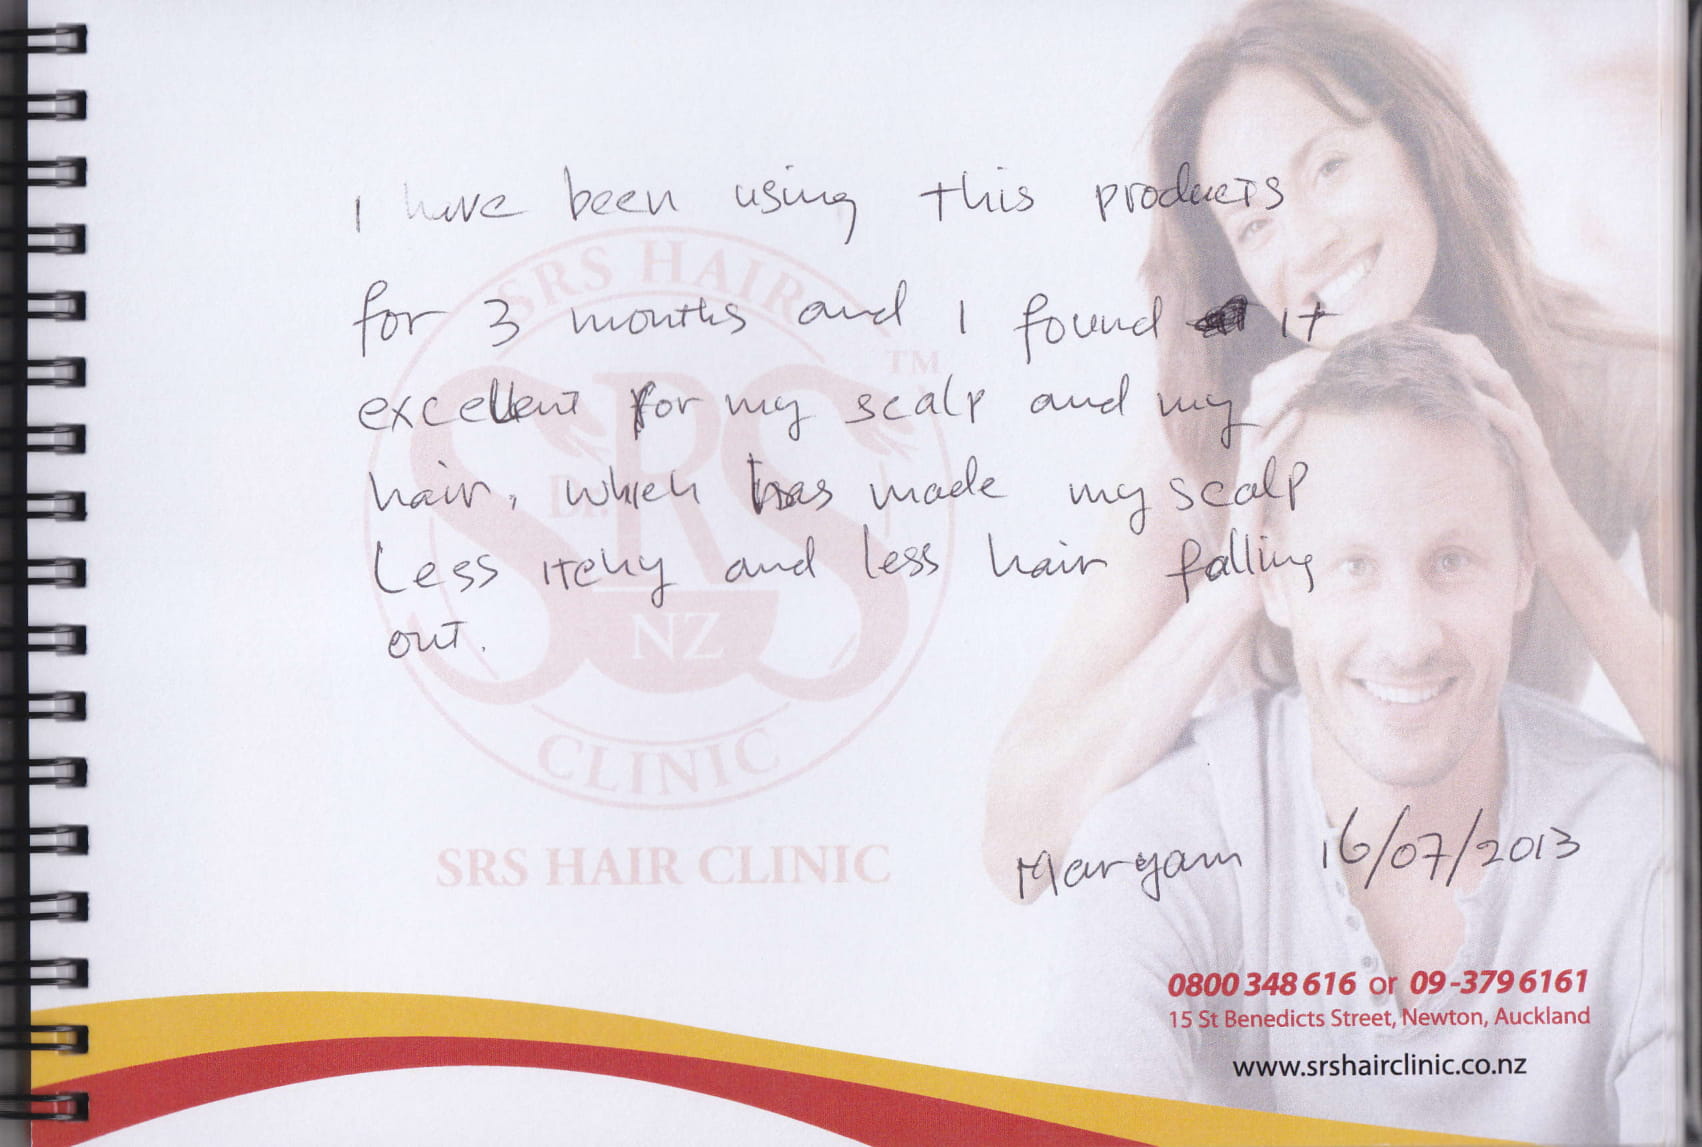 I have been using this products
for 3 months and I found it
excellent for my scalp and my
hair, which has made my scalp
Less itchy and less hair falling
out.
SRS HAIR
TM
SRS
NZ
CLINIC
SRS HAIR CLINIC
Maryam 16/07/2013
0800 348 616 or 09-379 6161
15 St Benedicts Street, Newton, Auckland
www.srshairclinic.co.nz